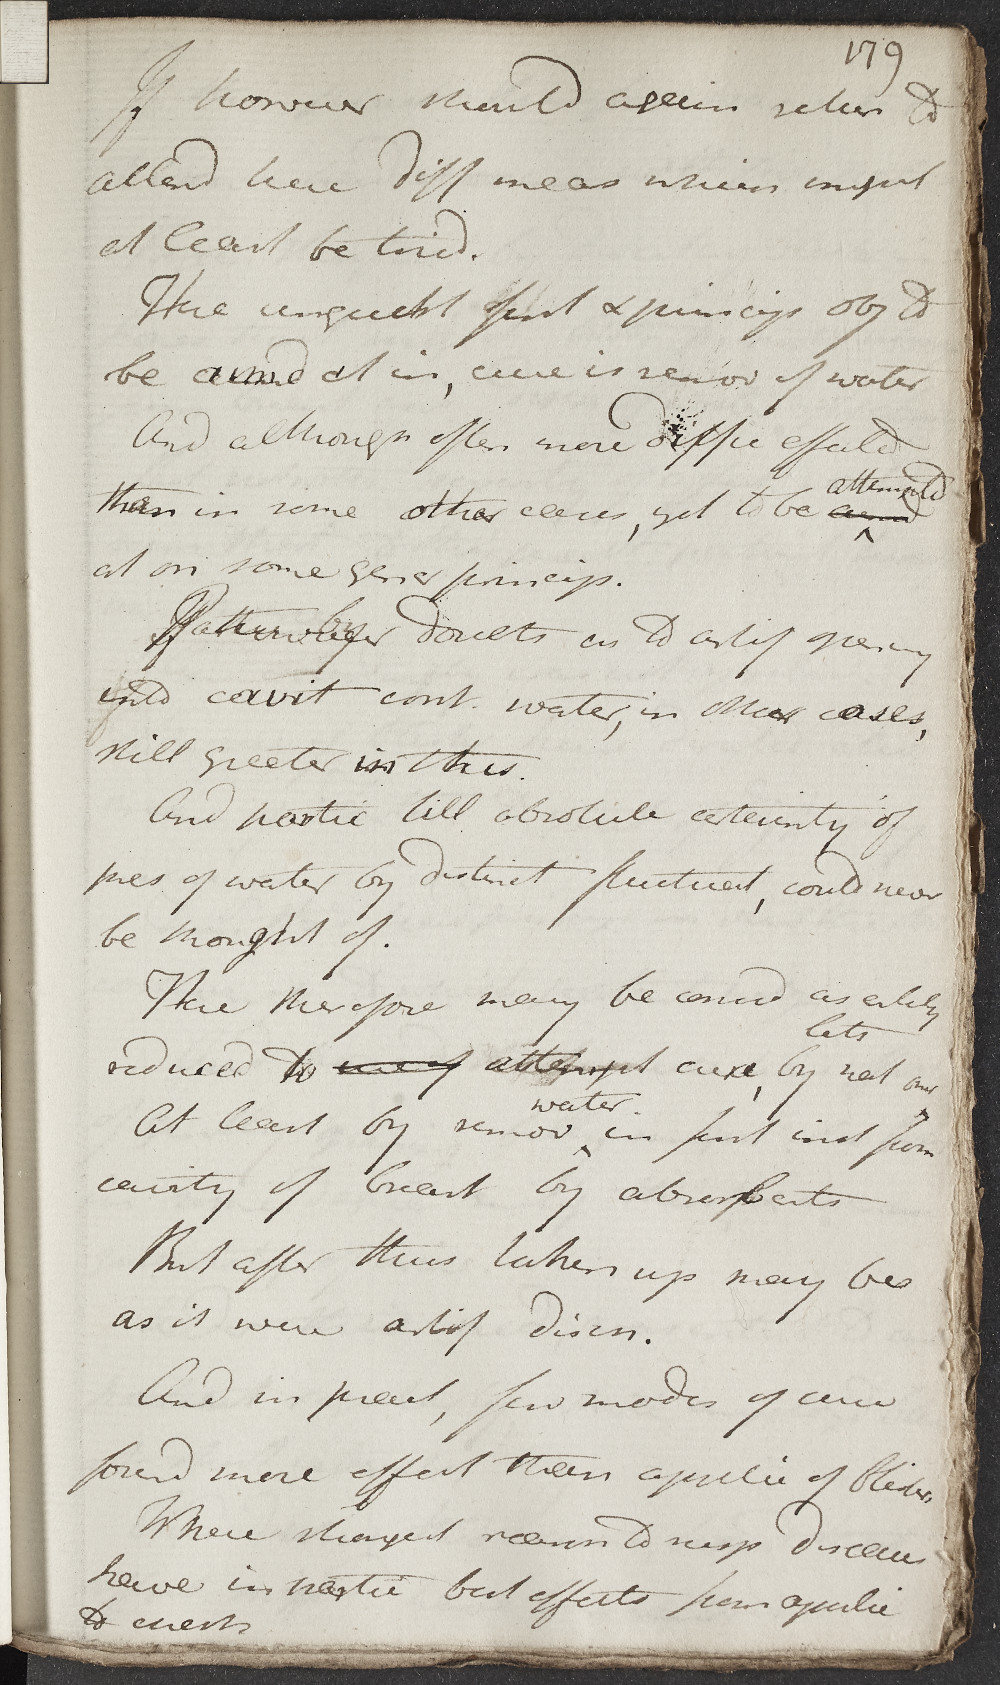 179
If however should again return to
attend here diff meas which might
at least be tried.
Here unquest first & princip obj to
be aimd at in, cure is remov of water
And although often more diffic effected
than in some other cases, yet to be attempted
at on some gener princip.
If doubts as to artif opening
into cavit cont. water, in other cases,
still greater in this.
And partic till absolute certainty of
pres of water by distinct fluctuat, could never
be thought of.
Here therefore may be consid as entirely
reduced to attempt cure, by nat outlets
At least by remov water in first inst from
cavity of breast by absorbents
But after thus taken up may be
as it were artif disch.
And in pract, few modes of cure
found more effect than applic of Blister.
Where strongest reason to susp disease
have in partic best effects from applic
to chest